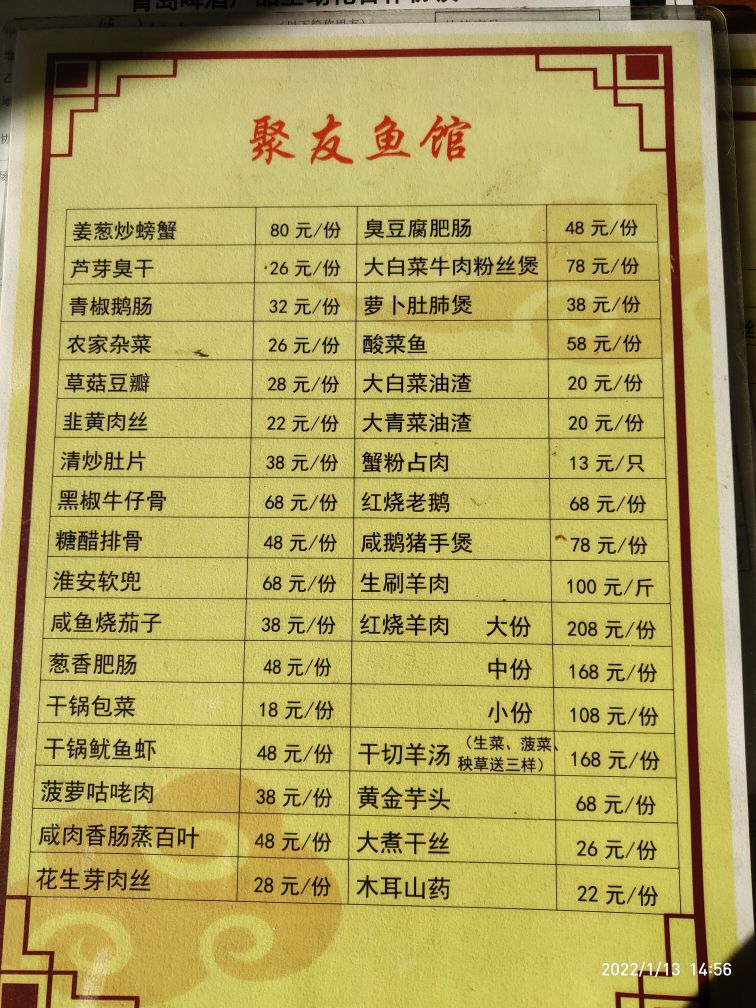 聚友鱼馆
姜葱炒螃蟹 80 元/份 臭豆腐肥肠 48 元/份
芦芽臭干 26 元/份 大白菜牛肉粉丝煲 78 元/份
青椒鹅肠 32 元/份 萝卜肚肺煲 38 元/份
农家杂菜 26 元/份 酸菜鱼 58 元/份
草菇豆瓣 28 元/份 大白菜油渣 20 元/份
韭黄肉丝 22 元/份 大青菜油渣 20 元/份
清炒肚片 38 元/份 蟹粉占肉 13 元/只
黑椒牛仔骨 68 元/份 红烧老鹅 68 元/份
糖醋排骨 48 元/份 咸鹅猪手煲 78 元/份
淮安软兜 68 元/份 生刷羊肉 100 元/斤
咸鱼烧茄子 38 元/份 红烧羊肉 大份 208 元/份
葱香肥肠 48 元/份 中份 168 元/份
干锅包菜 18 元/份 小份 108 元/份
干锅鱿鱼虾 48 元/份 干切羊汤 (生菜、菠菜、秧草送三样) 168 元/份
菠萝咕咾肉 38 元/份 黄金芋头 68 元/份
咸肉香肠蒸百叶 48 元/份 大煮干丝 26 元/份
花生芽肉丝 28 元/份 木耳山药 22 元/份
2022/1/13 14:56